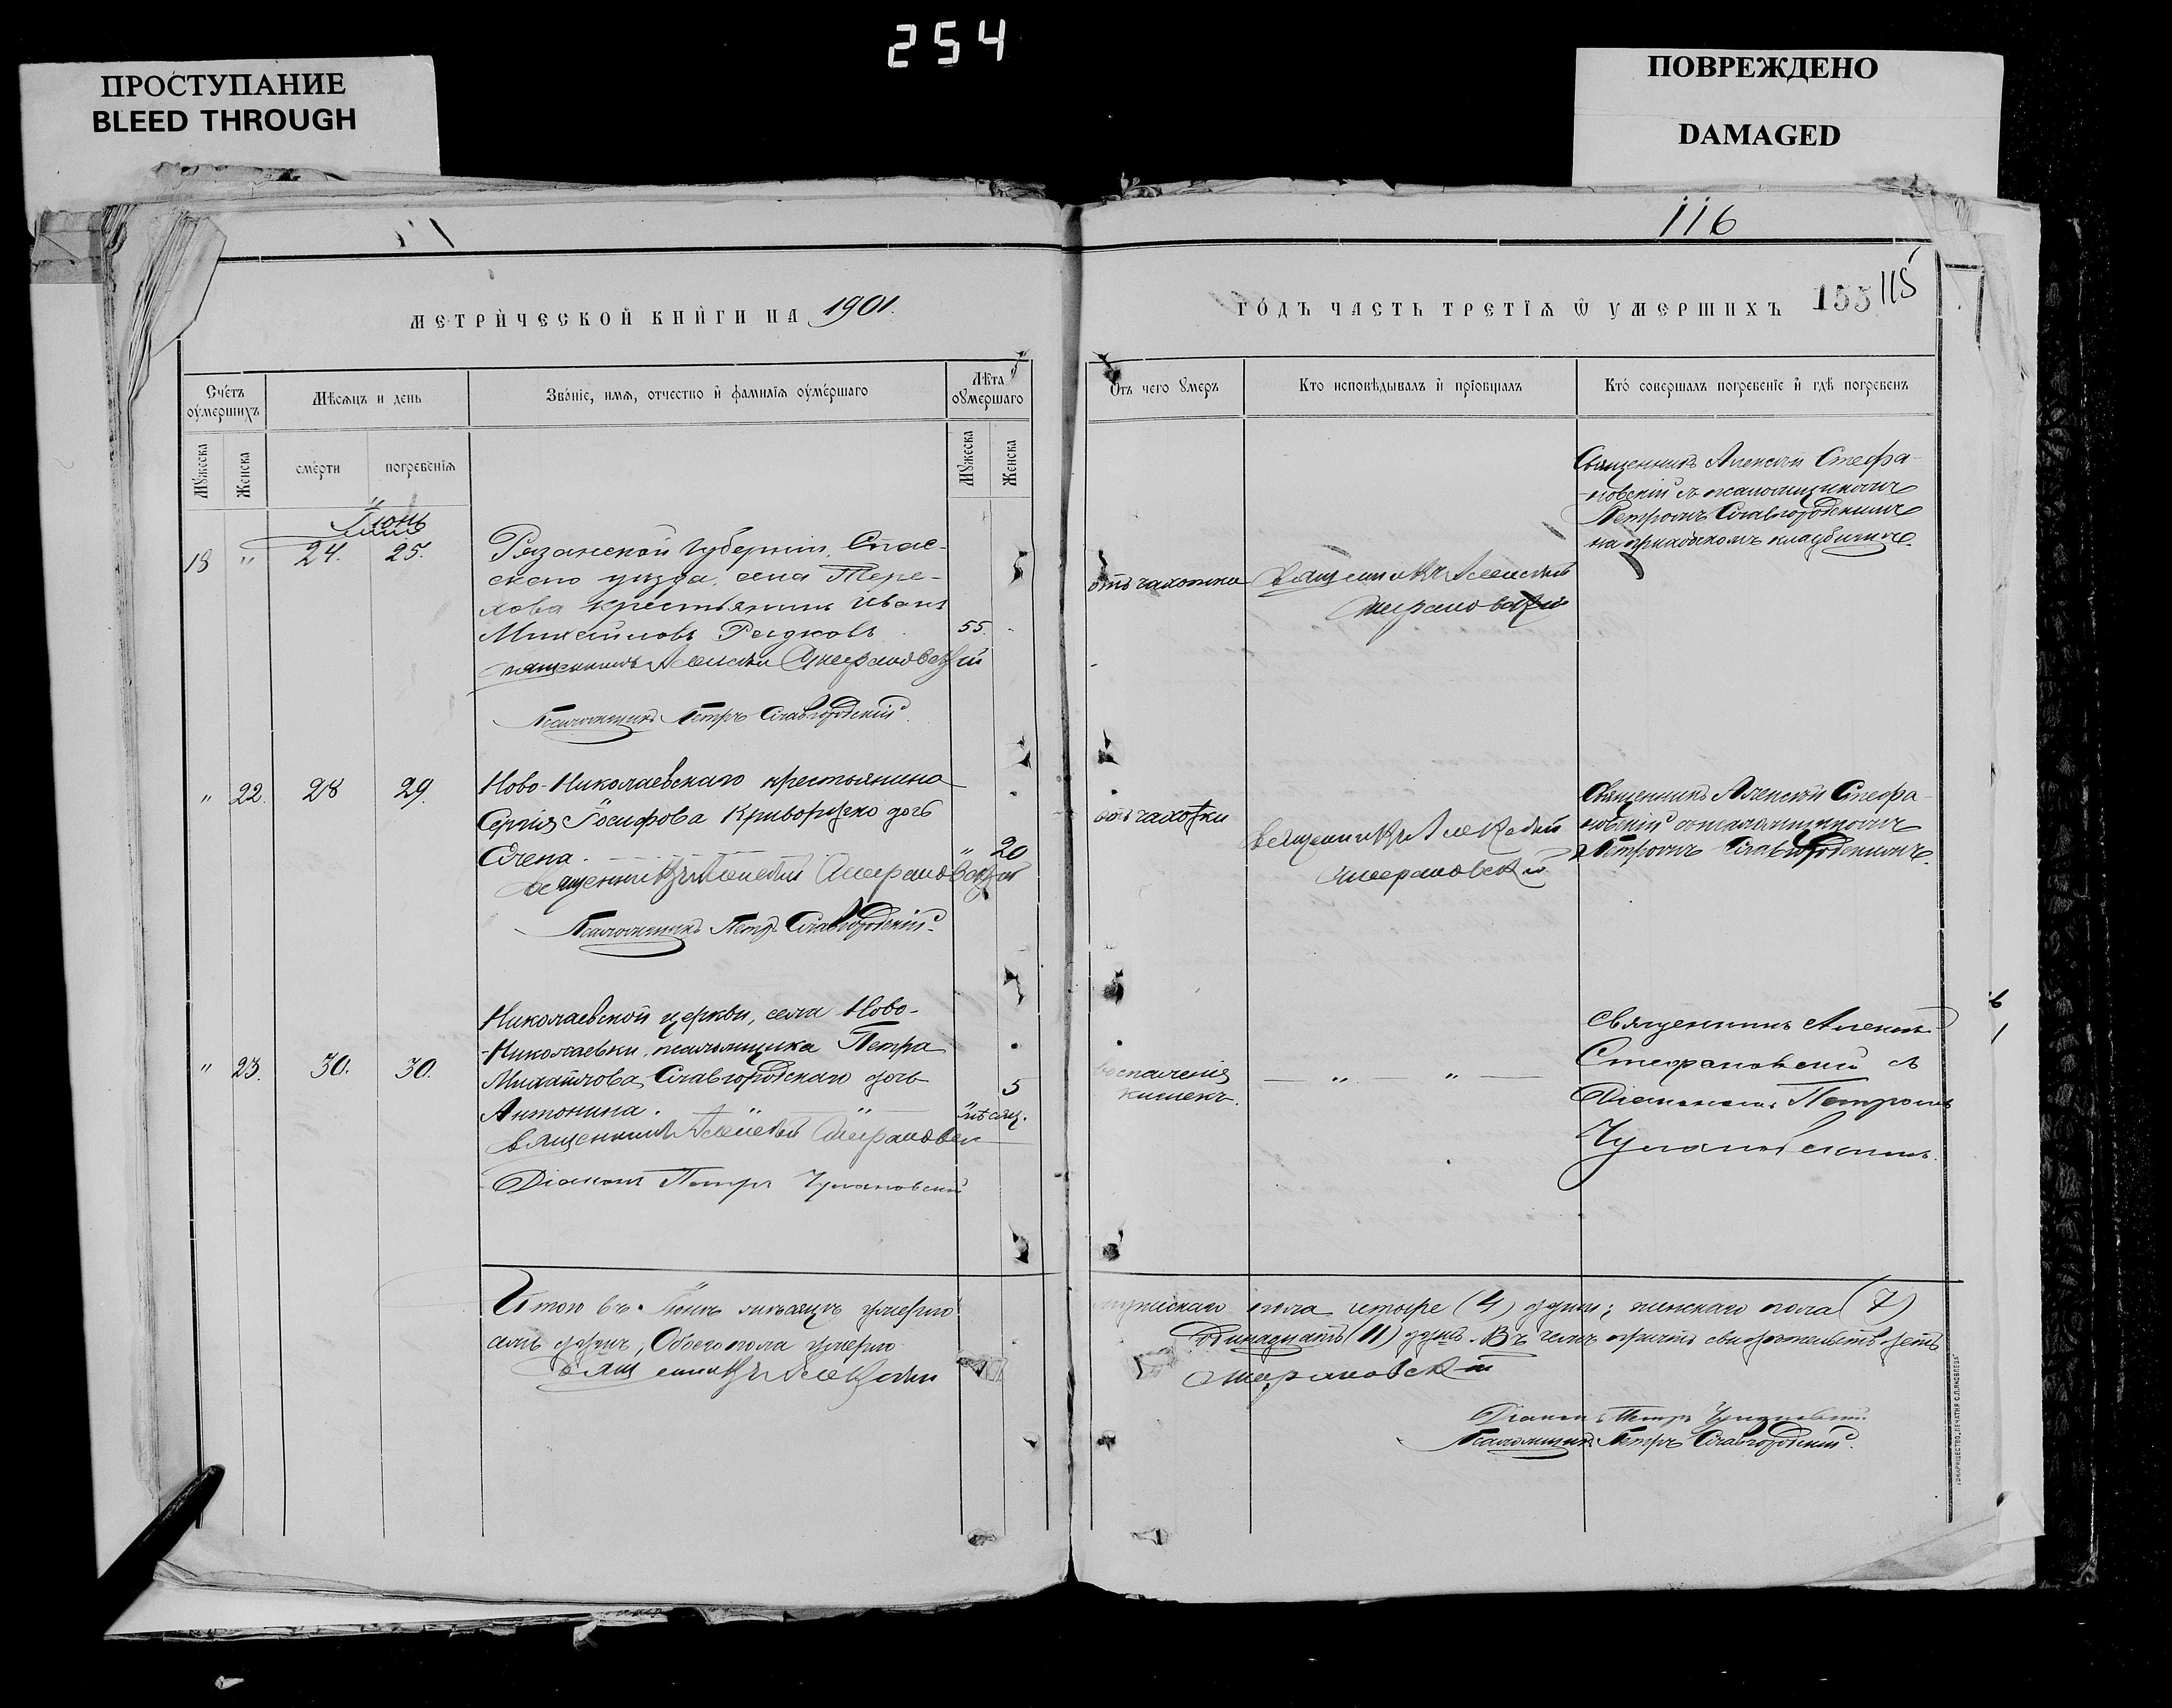 254
ПРОСТУПАНИЕ
BLEED THROUGH
ПОВРЕЖДЕНО
DAMAGED
116
МЕТРИЧЕСКОЙ КНИГИ НА 1901.
ГОДЪ ЧАСТЬ ТРЕТІЯ Ѿ УМЕРШИХЪ 155 115
Счетъ оумершихъ
Мѣсяцъ и день
Званіе, имя, отчество и фамилія оумершаго
Лѣта оумершаго
Отъ чего умеръ
Кто исповѣдывалъ и пріобщалъ
Кто совершалъ погребеніе и гдѣ погребенъ
Мужеска
Женска
смерти
погребенія
Мужеска
Женска
Іюнь
18 " 24. 25.
Рязанской Губерніи, Спас-
скаго уѣзда, села Тере-
хова крестьянинъ Иванъ
Михайловъ Редковъ 55.
Священникъ Алексѣй Стефановскій
Псаломщикъ Петръ Славгородскій.
отъ чахотки
Священникъ Алексѣй
Стефановскій
Священникъ Алексѣй Стефа-
-новскій съ псаломщикомъ
Петромъ Славгородскимъ
на приходскомъ кладбищѣ.
" 22. 28 29.
Ново-Николаевскаго крестьянина
Сергія Іосифова Криворучко дочь
Елена. " 20
Священникъ Алексѣй Стефановскій
Псаломщикъ Петръ Славгородскій.
отъ чахотки
Священникъ Алексѣй
Стефановскій
Священникъ Алексѣй Стефа-
новскій съ псаломщикомъ
Петромъ Славгородскимъ.
" 23. 30. 30.
Николаевской церкви, села Ново-
-Николаевки, псаломщика Петра
Михайлова Славгородскаго дочь
Антонина. " " " 5 мѣсяц.
Священникъ Алексѣй Стефановскі
Діаконъ Петръ Чулановскій
воспаленія
кишекъ.
" "
Священникъ Алексѣй
Стефановскій съ
Діакономъ Петромъ
Чулановскимъ.
Итого въ Іюнѣ мѣсяцѣ умерло
мужескаго пола четыре (4) души; женскаго пола (7)
семь душъ, Обоего пола умерло
Одинадцать (11) душъ. Въ чемъ причтъ свидѣтельствуетъ
Священникъ Алексѣй
Стефановскій
Діаконъ Петръ Чулановскій.
Псаломщикъ Петръ Славгородскій.